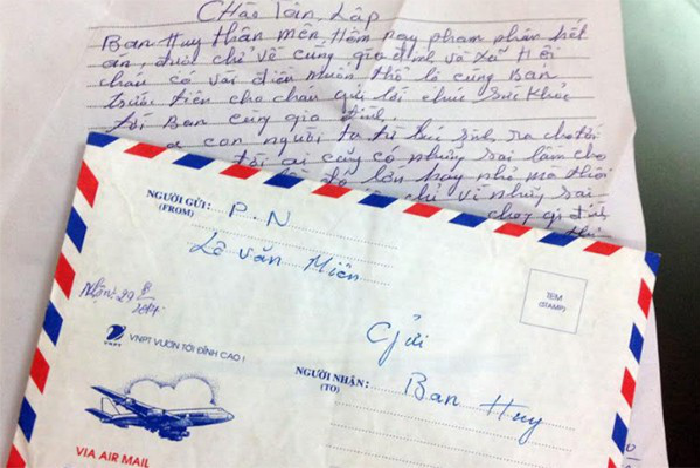 Chào Tân Lập
Ban Huy thân mến Hôm nay phạm nhân hết
án, được chỉ về cùng gia đình và xã Hội
cháu có vài điều muốn thổ lộ cùng Ban
trước tiên cho cháu gửi lời chúc sức khỏe
tới Ban cùng gia đình.
con người ta từ lúc sinh ra cho tới
tôi ai cũng có những sai lầm cho
dù là lớn hay nhỏ mà thôi
chỉ vì những sai
NGƯỜI GỬI: P.N
(FROM)
Lê Văn Miên
TEM
(STAMP)
Nhận: 29
VNPT VƯƠN TỚI ĐỈNH CAO!
VNPT
Gửi
NGƯỜI NHẬN: Ban Huy
(TO)
VIA AIR MAIL